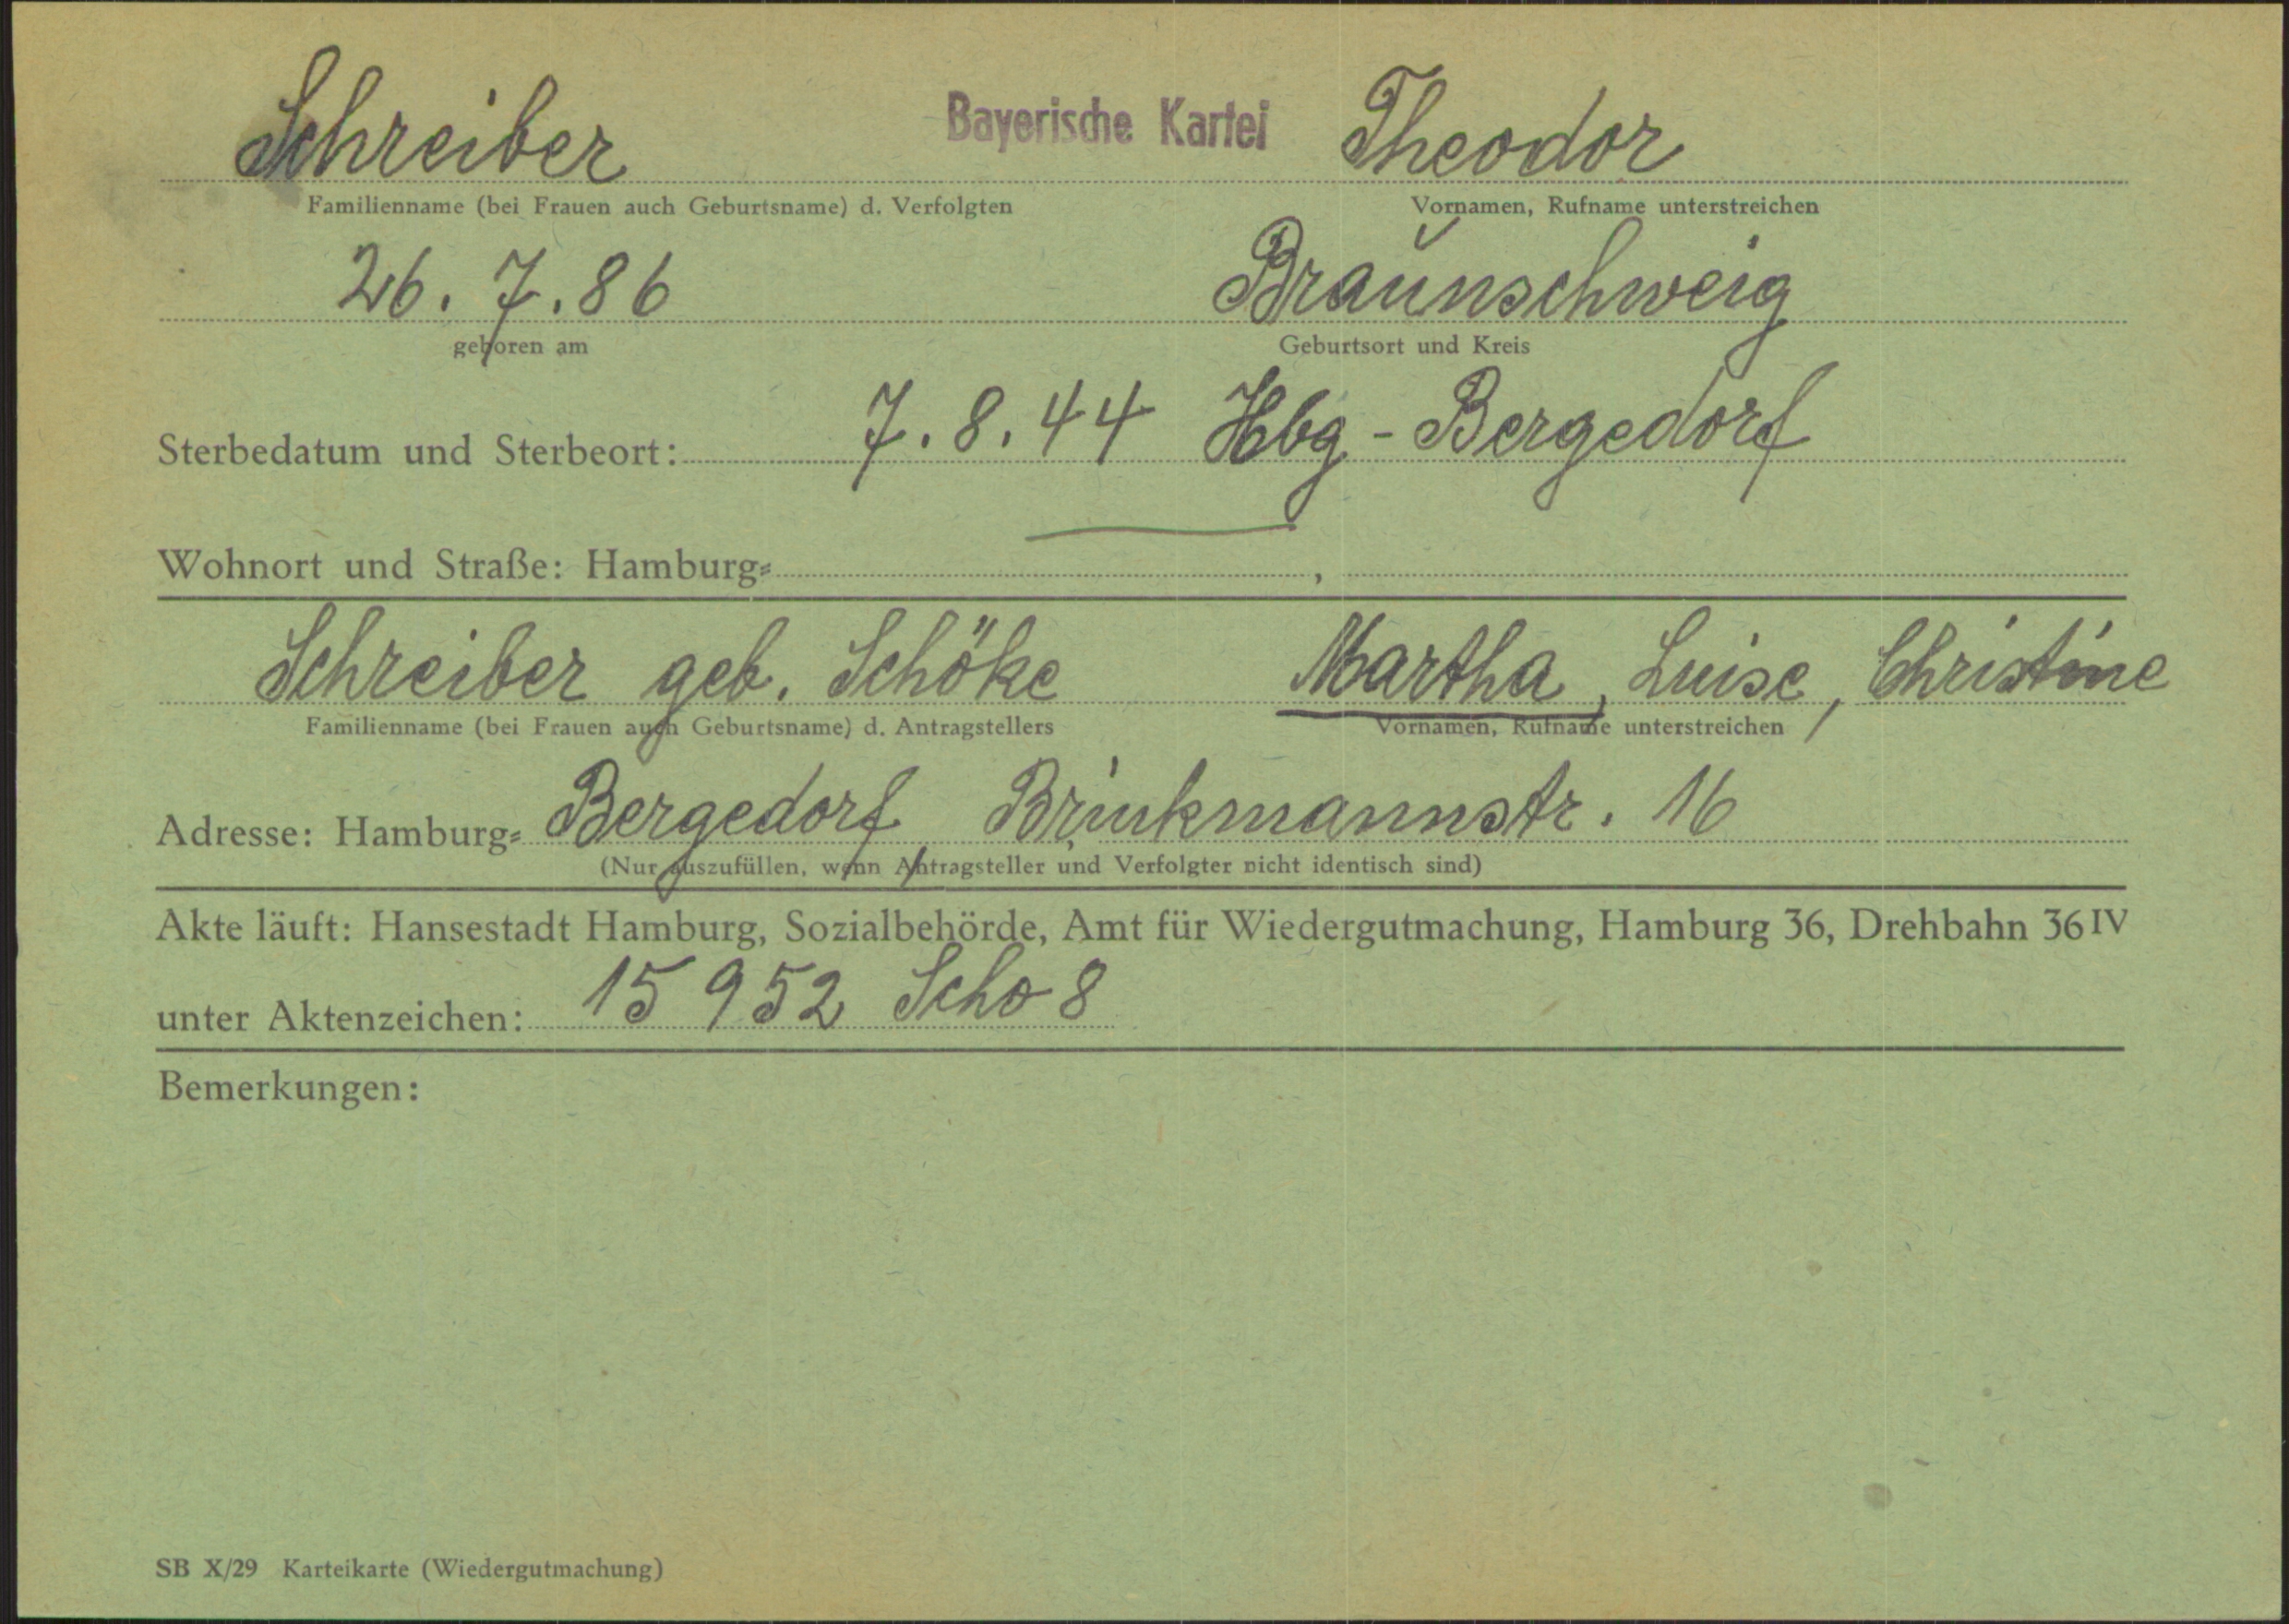 Schreiber Bayerische Kartei Theodor
Familienname (bei Frauen auch Geburtsname) d. Verfolgten Vornamen, Rufname unterstreichen
26. 7. 86 Braunschweig
geboren am Geburtsort und Kreis
Sterbedatum und Sterbeort: 7. 8. 44 Hbg - Bergedorf
Wohnort und Straße: Hamburg- ,
Schreiber geb. Schöke Martha, Luise, Christine
Familienname (bei Frauen auch Geburtsname) d. Antragstellers Vornamen, Rufname unterstreichen
Adresse: Hamburg- Bergedorf, Brinkmannstr. 16
(Nur auszufüllen, wenn Antragsteller und Verfolgter nicht identisch sind)
Akte läuft: Hansestadt Hamburg, Sozialbehörde, Amt für Wiedergutmachung, Hamburg 36, Drehbahn 36 IV
unter Aktenzeichen: 15 952 Scho 8
Bemerkungen:
SB X/29 Karteikarte (Wiedergutmachung)